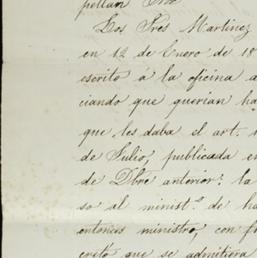 pellan
Los Srés Martinez
en 12 de Enero de 18
escrito á la oficina a
ciando que querian ha
que les daba el art.
de Julio, publicada en
de Dbre anterior. la
so al minist.º de ha
entonces ministro, con f
creto que se admitiera